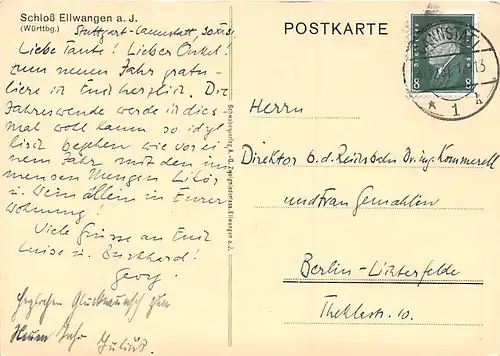 Schloß Ellwangen a. J.
(Württbg.)
Stuttgart-Cannstatt, 30.XII.31
Liebe Tante! Lieber Onkel!
Zum neuen Jahr gratu-
liere ich Euch herzlich. Die
Jahreswende werde ich dies-
mal wohl kaum so idyl-
lisch begehen wie vor ei-
nem Jahr mit den im-
mensen Mengen Likör
u. Wein allein in Eurer
Wohnung!
Viele Grüsse an Euch
Luise u. Burkhard!
Georg.
Herzlichen Glückwunsch zum
Neuen Jahr
POSTKARTE
CANNSTATT
8 8
* 1
Herrn
Direktor b. d. Reichsbahn Dr. ing. Kommerell
und Frau Gemahlin
Berlin-Lichterfelde
Theklastr. 10.